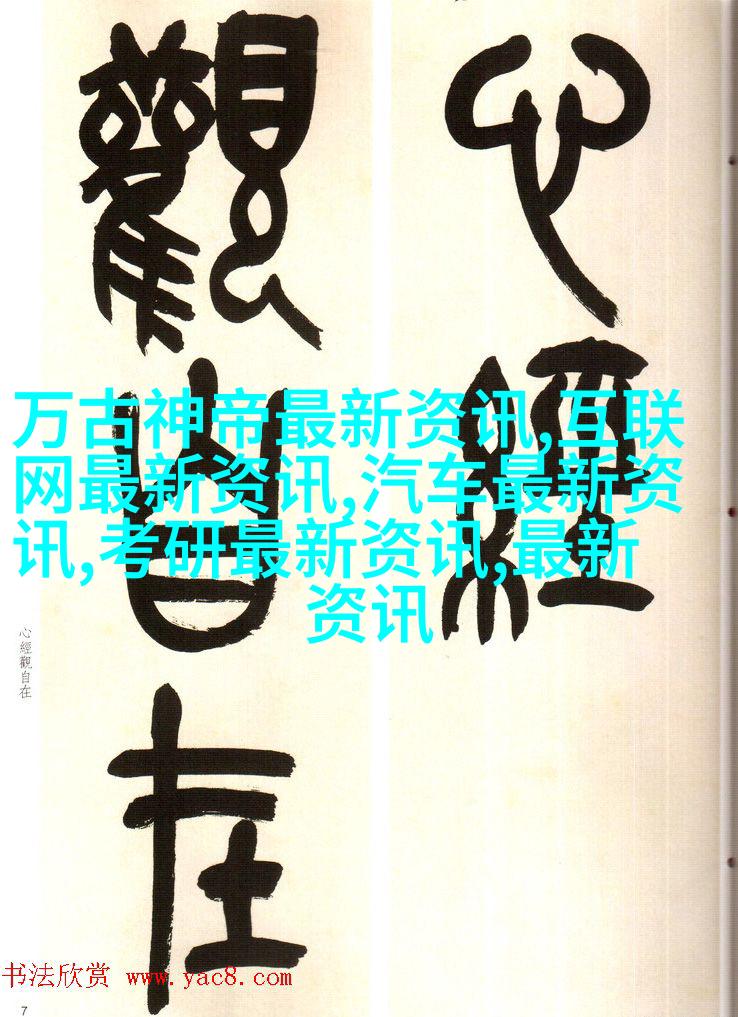 心經
觀自在
万古神帝最新资讯,互联
网最新资讯,汽车最新资
讯,考研最新资讯,最新
资讯
心經觀自在
书法欣赏 www.yac8.com
7